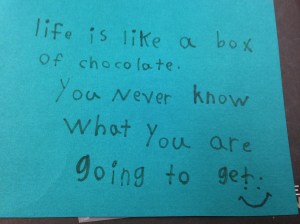 life is like a box
of chocolate.
You Never know
What You are
going to get.